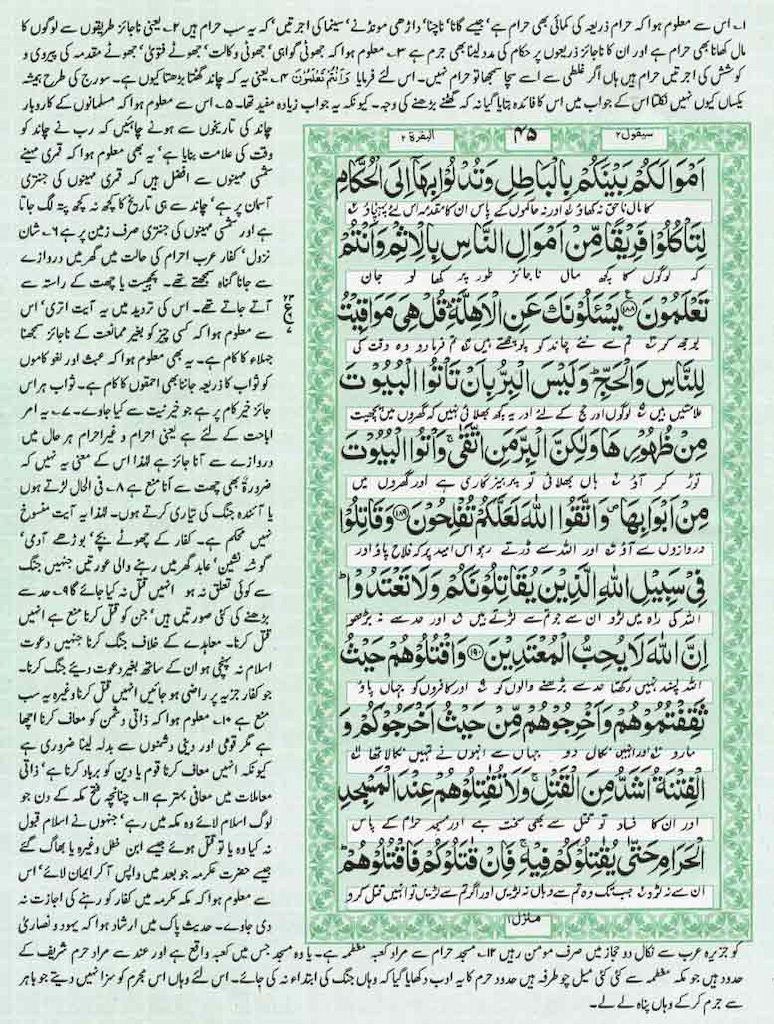 ۱۔ اس سے معلوم ہوا کہ حرام ذریعہ کی کمائی بھی حرام ہے' جیسے گانا' ناچنا' داڑھی مونڈنے' سینما کی اجرتیں' کہ یہ سب حرام ہیں ۲۔ یعنی ناجائز طریقوں سے لوگوں کا
مال کھانا بھی حرام ہے اور ان کا ناجائز ذریعوں پر حکام کی مدد لینا بھی جرم ہے ۳۔ معلوم ہوا کہ جھوٹی گواہی' جھوٹی وکالت' جھوٹے فتویٰ' جھوٹے مقدمہ کی پیروی و
کوشش کی اجرتیں حرام ہیں ہاں اگر غلطی سے اسے سچا سمجھا تو حرام نہیں۔ اس لئے فرمایا وَاَنْتُمْ تَعْلَمُوْنَ ۴۔ یعنی یہ کہ چاند گھٹتا بڑھتا کیوں ہے۔ سورج کی طرح ہمیشہ
یکساں کیوں نہیں نکلتا اس کے جواب میں اس کا فائدہ بتایا گیا نہ کہ گھٹنے بڑھنے کی وجہ۔ کیونکہ یہ جواب زیادہ مفید تھا۔ ۵۔ اس سے معلوم ہوا کہ مسلمانوں کے کاروبار
چاند کی تاریخوں سے ہونے چاہئیں کہ رب نے چاند کو
وقت کی علامت بنایا ہے' یہ بھی معلوم ہوا کہ قمری مہینے
شمسی مہینوں سے افضل ہیں کہ قمری مہینوں کی جنتری
آسمان پر ہے' چاند سے ہی تاریخ کا کچھ نہ کچھ پتہ لگ جاتا
ہے اور شمسی مہینوں کی جنتری صرف زمین پر ہے ۶۔ شان
نزول' کفار عرب احرام کی حالت میں گھر میں دروازے
سے جانا گناہ سمجھتے تھے۔ پچھیت یا چھت کے راستہ سے
آتے جاتے تھے۔ اس کی تردید میں یہ آیت اتری' اس
سے معلوم ہوا کہ کسی چیز کو بغیر ممانعت کے ناجائز سمجھنا
جہلاء کا کام ہے۔ یہ بھی معلوم ہوا کہ عبث اور لغو کاموں
کو ثواب کا ذریعہ جاننا بھی احمقوں کا کام ہے۔ ثواب ہر اس
جائز خیر کام پر ہے جو خیر نیت سے کیا جاوے۔ ۷۔ یہ امر
اباحت کے لئے ہے یعنی احرام و غیر احرام ہر حال میں
دروازے سے آنا جائز ہے لہذا اس کے معنی یہ نہیں کہ
ضرورۃً بھی چھت سے آنا منع ہے ۸۔ فی الحال لڑتے ہوں
یا آئندہ جنگ کی تیاری کرتے ہوں۔ لہذا یہ آیت منسوخ
نہیں محکم ہے۔ کفار کے چھوٹے بچے' بوڑھے آدمی'
گوشہ نشین' عابد گھر میں رہنے والی عورتیں جنہیں جنگ
سے کوئی تعلق نہ ہو انہیں قتل نہ کیا جائے گا ۹۔ حد سے
بڑھنے کی کئی صورتیں ہیں' جن کو قتل کرنا منع ہے انہیں
قتل کرنا۔ معاہدے کے خلاف جنگ کرنا جنہیں دعوت
اسلام نہ پہنچی ہو ان کے ساتھ بغیر دعوت دیئے جنگ کرنا۔
جو کفار جزیہ پر راضی ہو جائیں انہیں قتل کرنا وغیرہ یہ سب
منع ہے ۱۰۔ معلوم ہوا کہ ذاتی دشمن کو معاف کرنا اچھا
ہے مگر قومی اور دینی دشمنوں سے بدلہ لینا ضروری ہے
کیونکہ انہیں معاف کرنا قوم یا دین کو برباد کرنا ہے' ذاتی
معاملات میں معافی بہتر ہے ۱۱۔ چنانچہ فتح مکہ کے دن جو
لوگ اسلام لائے وہ مکہ میں رہے' جنہوں نے اسلام قبول
نہ کیا وہ یا تو قتل ہوئے جیسے ابن خطل وغیرہ یا بھاگ گئے
جیسے حضرت عکرمہ جو بعد میں واپس آ کر ایمان لائے' اس
سے معلوم ہوا کہ مکہ مکرمہ میں کفار کو رہنے کی اجازت نہ
دی جاوے۔ حدیث پاک میں ارشاد ہوا کہ یہود و نصاریٰ
سیقول ۲
۴۵
البقرة ۲
اَمْوَالَكُمْ بَيْنَكُمْ بِالْبَاطِلِ وَتُدْلُوْا بِهَاۤ اِلَى الْحُكَّامِ
کا مال ناحق نہ کھاؤ اور نہ حاکموں کے پاس ان کا مقدمہ اس لئے پہنچاؤ
لِتَاْكُلُوْا فَرِيْقًا مِّنْ اَمْوَالِ النَّاسِ بِالْاِثْمِ وَاَنْتُمْ
کہ لوگوں کا کچھ مال ناجائز طور پر کھا لو جان
تَعْلَمُوْنَ ﴿۱۸۸﴾ يَسْـَٔلُوْنَكَ عَنِ الْاَهِلَّةِ ؕ قُلْ هِىَ مَوَاقِيْتُ
بوجھ کر تم سے نئے چاند کو پوچھتے ہیں تم فرما دو وہ وقت کی
لِلنَّاسِ وَالْحَجِّ ؕ وَلَيْسَ الْبِرُّ بِاَنْ تَاْتُوا الْبُيُوْتَ
علامتیں ہیں لوگوں اور حج کے لئے اور یہ کچھ بھلائی نہیں کہ گھروں میں پچھیت
مِنْ ظُهُوْرِهَا وَلٰكِنَّ الْبِرَّ مَنِ اتَّقٰى ۚ وَاْتُوا الْبُيُوْتَ
توڑ کر آؤ ہاں بھلائی تو پرہیزگاری ہے اور گھروں میں
مِنْ اَبْوَابِهَا ۪ وَاتَّقُوا اللّٰهَ لَعَلَّكُمْ تُفْلِحُوْنَ ﴿۱۸۹﴾ وَقَاتِلُوْا
دروازوں سے آؤ اور اللہ سے ڈرتے رہو اس امید پر کہ فلاح پاؤ اور
فِىْ سَبِيْلِ اللّٰهِ الَّذِيْنَ يُقَاتِلُوْنَكُمْ وَلَا تَعْتَدُوْا ؕ
اللہ کی راہ میں لڑو ان سے جو تم سے لڑتے ہیں اور حد سے نہ بڑھو
اِنَّ اللّٰهَ لَا يُحِبُّ الْمُعْتَدِيْنَ ﴿۱۹۰﴾ وَاقْتُلُوْهُمْ حَيْثُ
اللہ پسند نہیں رکھتا حد سے بڑھنے والوں کو اور کافروں کو جہاں پاؤ
ثَقِفْتُمُوْهُمْ وَاَخْرِجُوْهُمْ مِّنْ حَيْثُ اَخْرَجُوْكُمْ وَ
مارو اور انہیں نکال دو جہاں سے انہوں نے تمہیں نکالا تھا
الْفِتْنَةُ اَشَدُّ مِنَ الْقَتْلِ ۚ وَلَا تُقٰتِلُوْهُمْ عِنْدَ الْمَسْجِدِ
اور ان کا فساد تو قتل سے بھی سخت ہے اور مسجد حرام کے پاس
الْحَرَامِ حَتّٰى يُقٰتِلُوْكُمْ فِيْهِ ۚ فَاِنْ قٰتَلُوْكُمْ فَاقْتُلُوْهُمْ ؕ
ان سے نہ لڑو جب تک وہ تم سے وہاں نہ لڑیں اور اگر تم سے لڑیں تو انہیں قتل کرو
منزل ۱
کو جزیرہ عرب سے نکال دو حجاز میں صرف مومن رہیں ۱۲۔ مسجد حرام سے مراد کعبہ معظمہ ہے۔ یا وہ مسجد جس میں کعبہ واقع ہے اور عند سے مراد حرم شریف کے
حدود ہیں جو مکہ معظمہ سے کئی کئی میل چو طرفہ ہیں حدود حرم کا یہ ادب دکھایا گیا کہ وہاں جنگ کی ابتداء نہ کی جائے۔ اس لئے وہاں اس مجرم کو سزا نہیں دیتے جو باہر
سے جرم کر کے وہاں پناہ لے لے۔